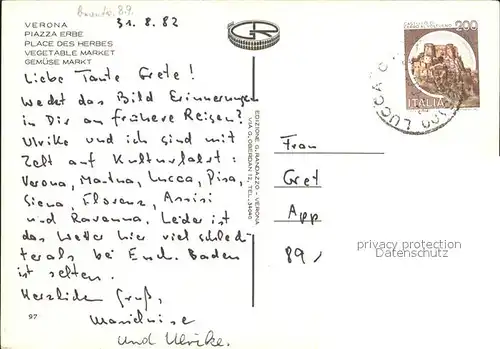 31. 8. 82
VERONA
PIAZZA ERBE
PLACE DES HERBES
VEGETABLE MARKET
GEMÜSE MARKT
Liebe Tante Grete!
Weckt das Bild Erinnerungen
in Dir an frühere Reisen?
Ulrike und ich sind mit
Zelt auf Kulturfahrt:
Verona, Mantua, Lucca, Pisa,
Siena, Florenz, Assisi
und Ravenna. Leider ist
das Wetter hier viel schlech-
ter als bei Euch. Baden
ist selten.
Herzlichen Gruß,
und Ulrike.
97
EDIZIONE G. RANDAZZO - VERONA
VIA G. OBERDAN 12, TEL. 34045
GR
200
ITALIA
LUCCA
Frau
Gret
App
89
privacy protection
Datenschutz